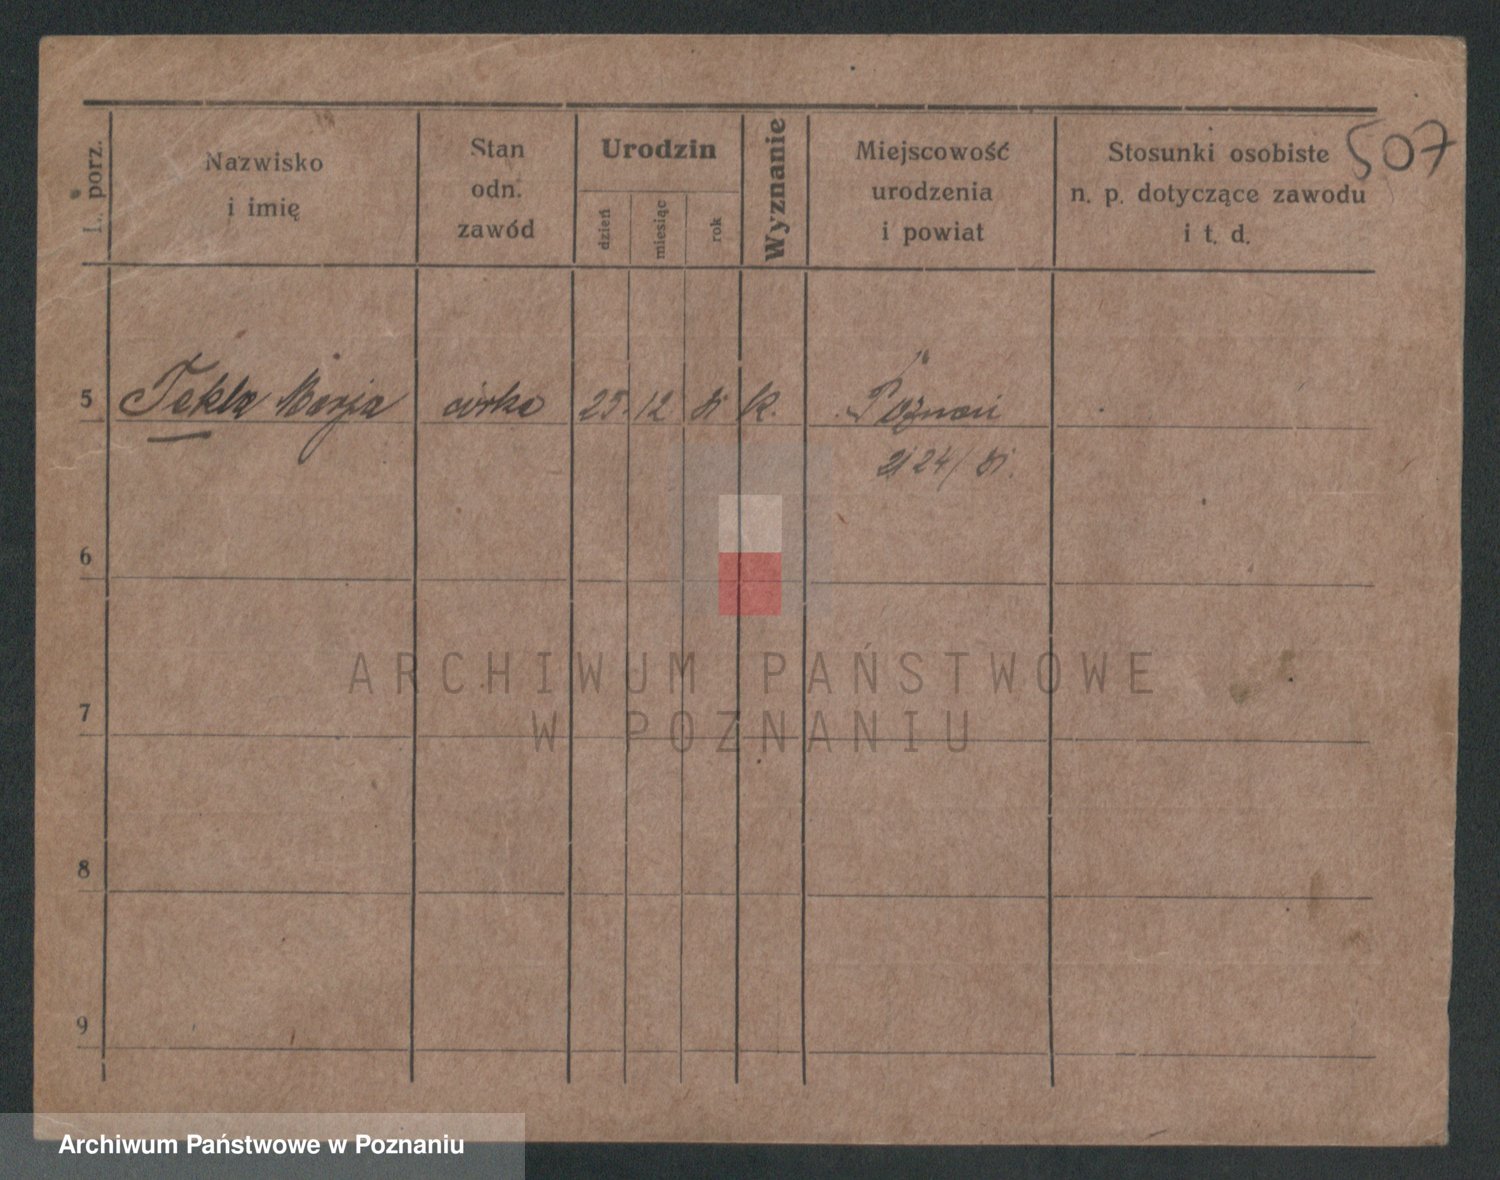 507
L. porz.
Nazwisko
i imię
Stan
odn.
zawód
Urodzin
dzień
miesiąc
rok
Wyznanie
Miejscowość
urodzenia
i powiat
Stosunki osobiste
n. p. dotyczące zawodu
i t. d.
5 Tekla Marja córka 25. 12 K. Poznań
6
7
8
9
ARCHIWUM PAŃSTWOWE
W POZNANIU
Archiwum Państwowe w Poznaniu